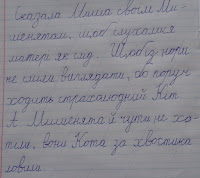 Сказала Миша своїм Ми-
шенятам, щоб слухалися
матері як слід. Щоб із нори
не сміли виглядати, бо поруч
ходить страхолюдний Кіт
А Мишенята й чути не хо-
тіли, вони Кота за хвостика
ловили.